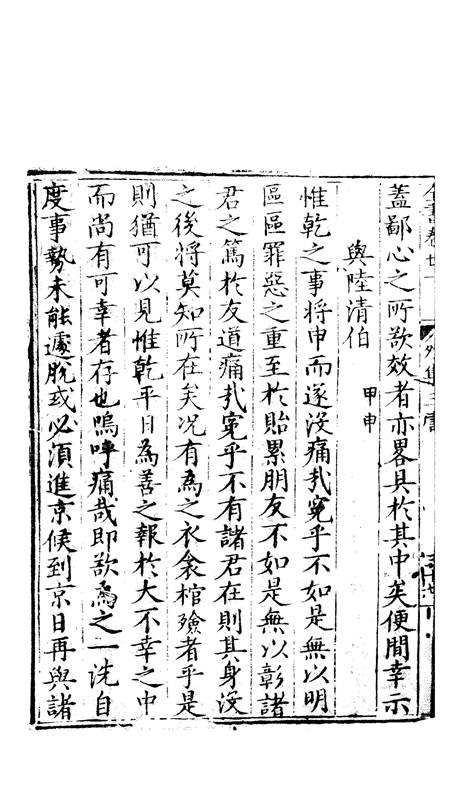 全書卷廿一 外集三 書
蓋鄙心之所欲效者亦畧具於其中矣便間幸示
與陸清伯 甲申
惟乾之事將申而遂沒痛哉寃乎不如是無以明
區區罪惡之重至於貽累朋友不如是無以彰諸
君之篤於友道痛哉寃乎不有諸君在則其身沒
之後將莫知所在矣况有為之衣衾棺殮者乎是
則猶可以見惟乾平日為善之報於大不幸之中
而尚有可幸者存也嗚呼痛哉即欲為之一洗自
度事勢未能遽脫或必須進京候到京日再與諸